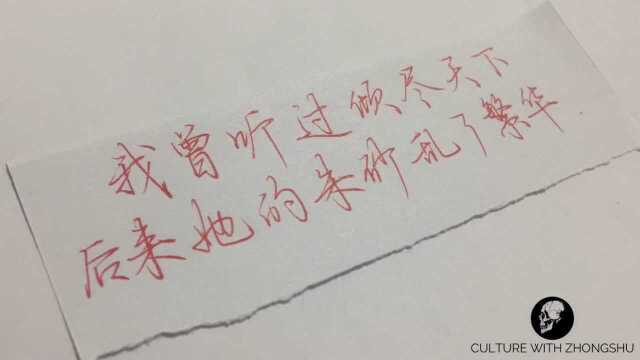 我曾听过倾尽天下
后来她的朱砂乱了繁华
CULTURE WITH ZHONGSHU